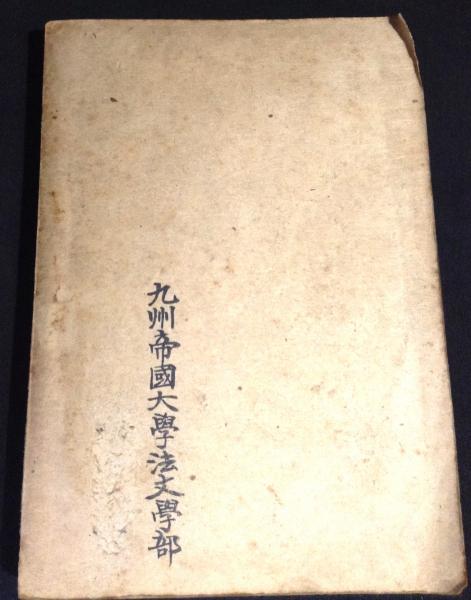 九州帝國大學法文學部